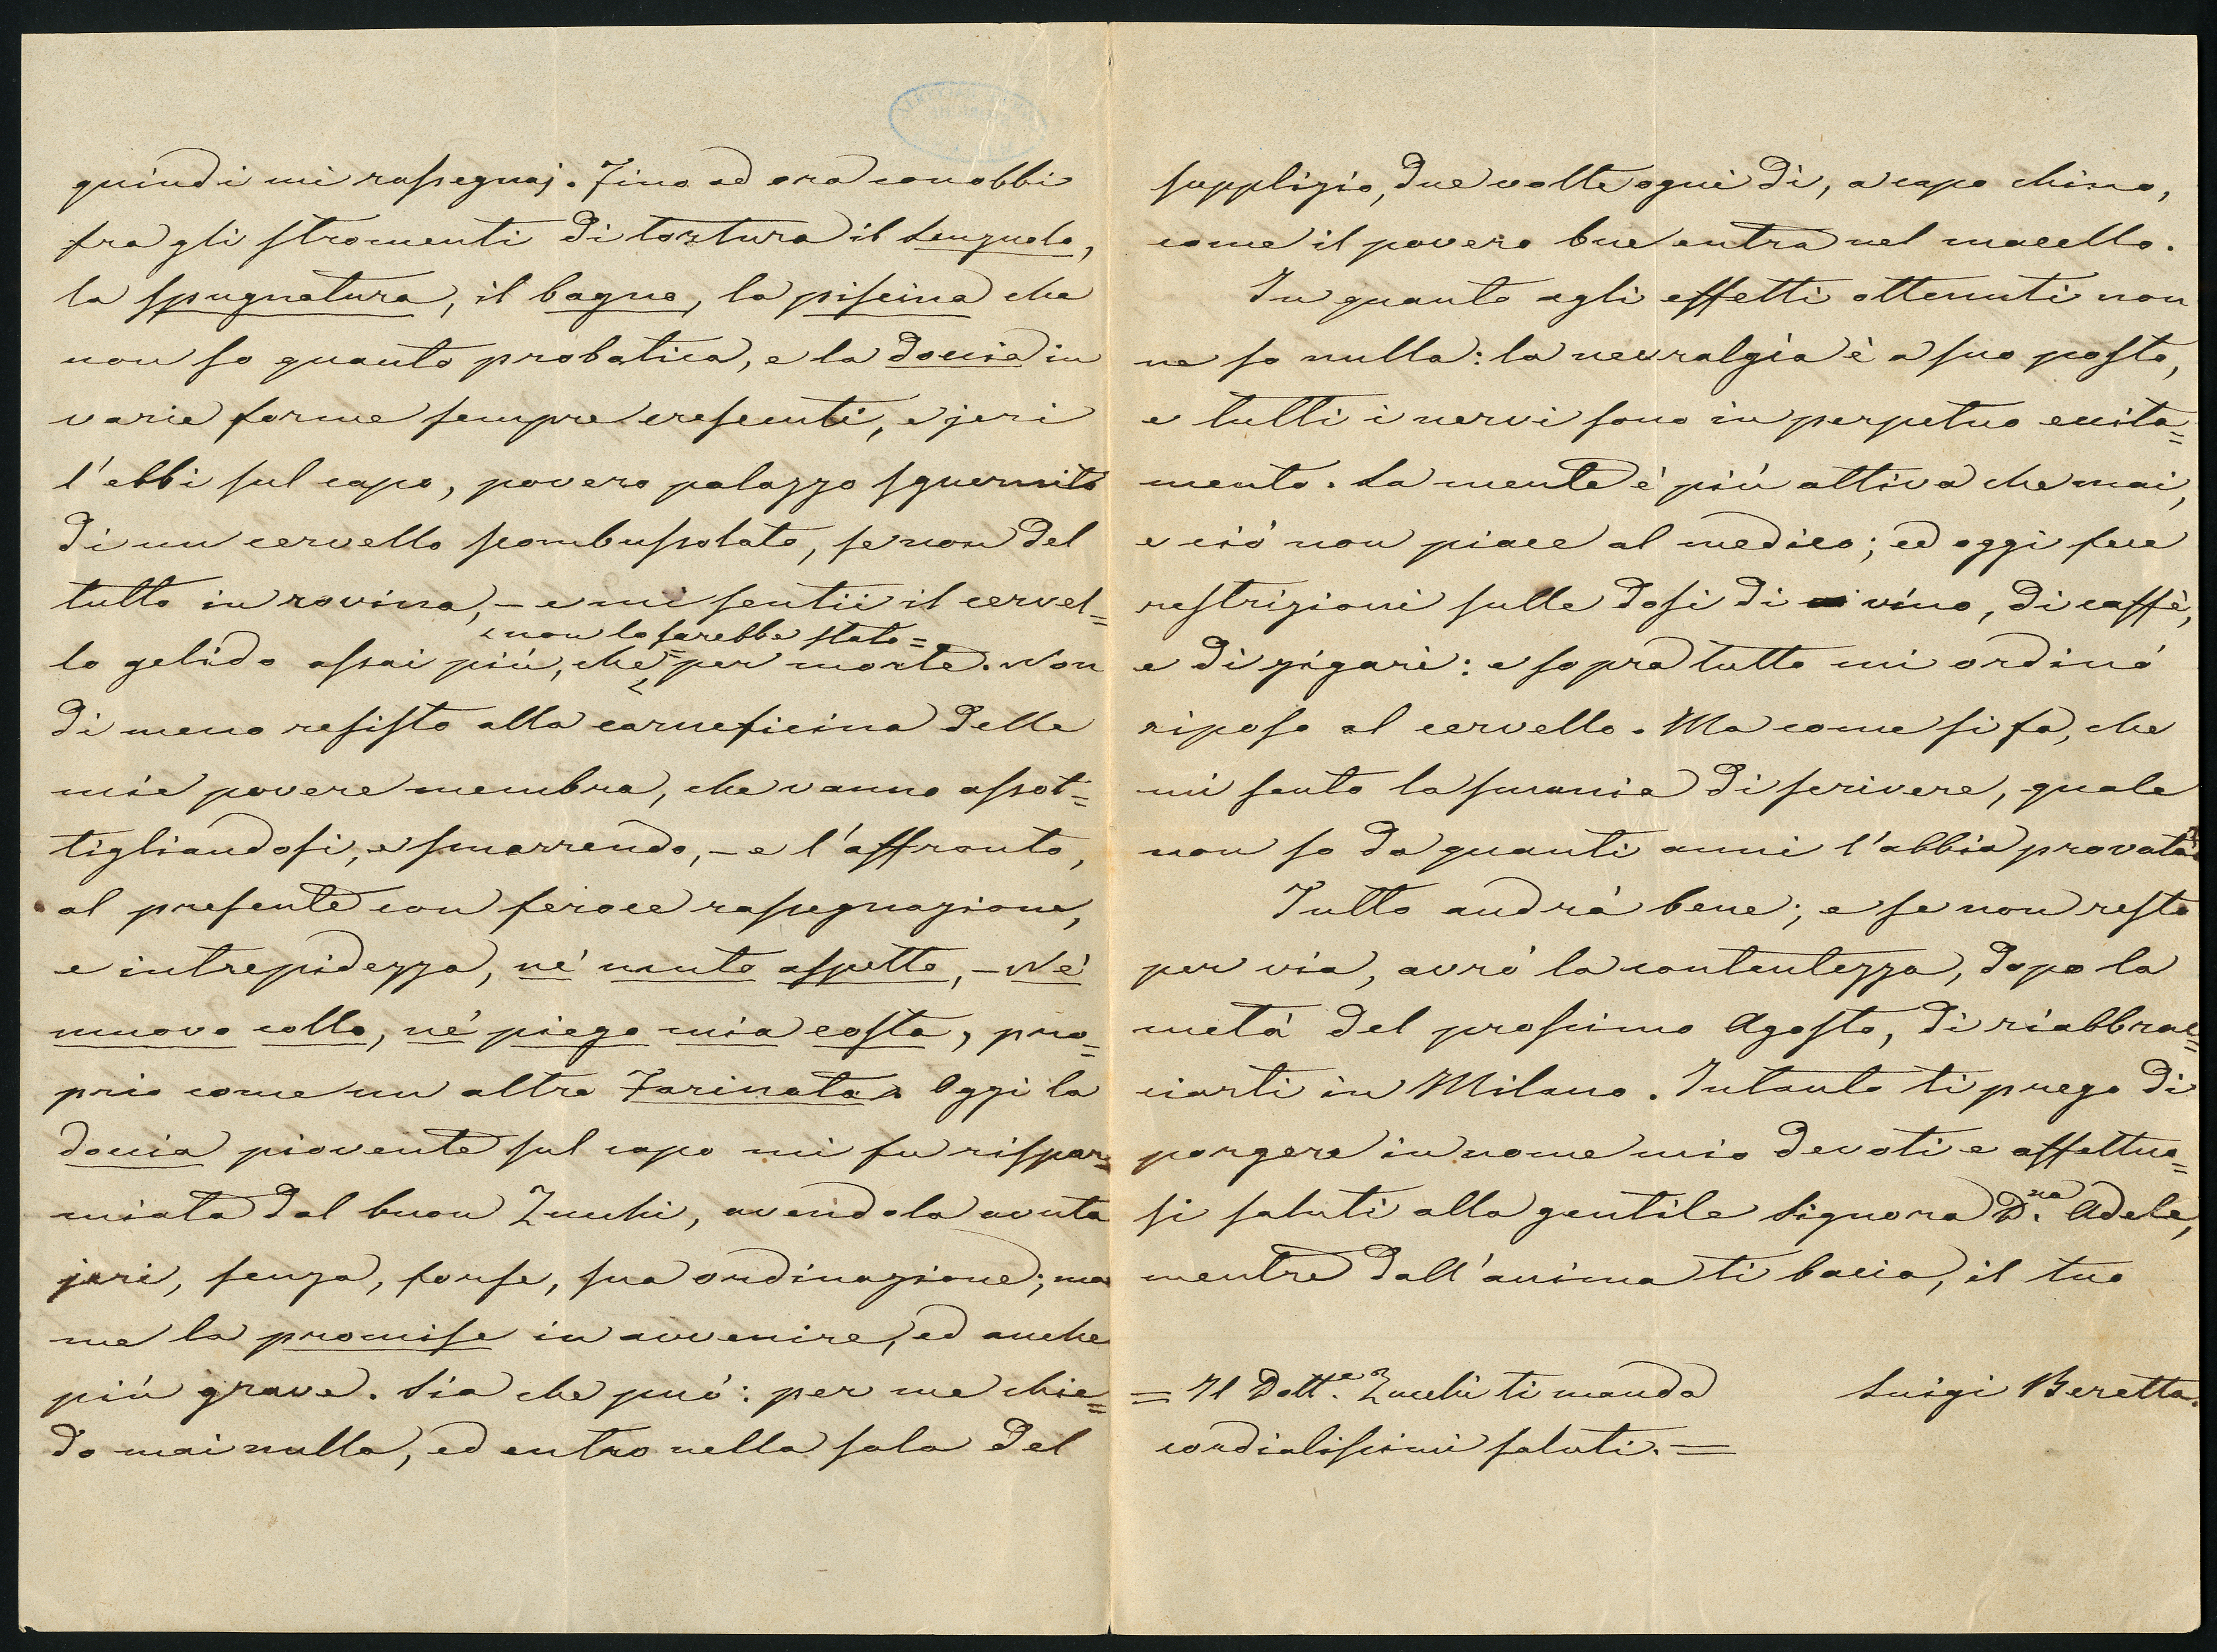 quindi mi rassegnaj. Fino ad ora conobbi
fra gli stromenti di tortura il lenzuolo,
la spugnatura, il bagno, la piscina che
non so quanto probatica, e la doccia in
varie forme sempre crescenti, e jeri
l'ebbi sul capo, povero palazzo sguernito
di un cervello scombussolato, se non del
tutto in rovina, – e mi sentii il cervel=
= non lo sarebbe stato =
lo gelido assai più, che per morte. Non
di meno resisto alla carneficina delle
mie povere membra, che vanno assot=
tigliandosi, e smarrendo, – e l'affronto,
al presente con feroce rassegnazione,
e intrepidezza, né muto aspetto, – Né
muovo collo, né piego mia costa, pro=
prio come un altro Farinata. Oggi la
doccia piovente sul capo mi fu rispar=
miata dal buon Zucchi, avendola avuta
jeri, senza, forse, sua ordinazione; ma
me la promise in avvenire, ed anche
più grave. Sia che può: per me chie=
do mai nulla, ed entro nella sala del
supplizio, due volte ogni dì, a capo chino,
come il povero bue entra nel macello.
In quanto agli effetti ottenuti non
ne so nulla: la nevralgia è a suo posto,
e tutti i nervi sono in perpetuo eccita=
mento. La mente è più attiva che mai,
e ciò non piace al medico; ed oggi fece
restrizioni sulle dosi di vino, di caffè,
e di zigari: e sopra tutto mi ordinò
riposo al cervello. Ma come si fa, che
mi sento la smania di scrivere, quale
non so da quanti anni l'abbia provata.
Tutto andrà bene; e se non resto
per via, avrò la contentezza, dopo la
metà del prossimo Agosto, di riabbrac=
ciarti in Milano. Intanto ti prego di
porgere in nome mio devoti e affettuo=
si saluti alla gentile Signora D.na Adele,
mentre dall'anima ti bacio, il tuo
= Il Dott.e Zucchi ti manda
cordialissimi saluti. =
Luigi Beretta.